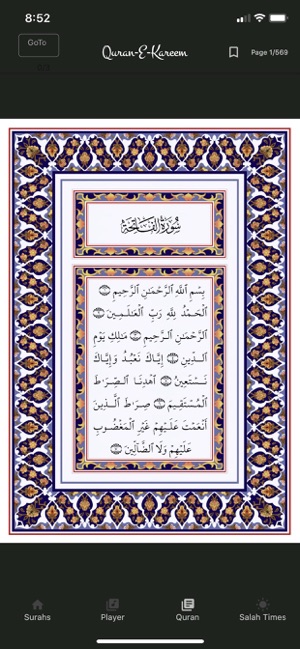 8:52
GoTo
Quran-E-Kareem
Page 1/569
سُورَةُ الْفَاتِحَةِ
بِسْمِ ٱللَّهِ ٱلرَّحْمَـٰنِ ٱلرَّحِيمِ ۝
ٱلْحَمْدُ لِلَّهِ رَبِّ ٱلْعَـٰلَمِينَ ۝
ٱلرَّحْمَـٰنِ ٱلرَّحِيمِ ۝ مَـٰلِكِ يَوْمِ
ٱلدِّينِ ۝ إِيَّاكَ نَعْبُدُ وَإِيَّاكَ
نَسْتَعِينُ ۝ ٱهْدِنَا ٱلصِّرَٰطَ
ٱلْمُسْتَقِيمَ ۝ صِرَٰطَ ٱلَّذِينَ
أَنْعَمْتَ عَلَيْهِمْ غَيْرِ ٱلْمَغْضُوبِ
عَلَيْهِمْ وَلَا ٱلضَّآلِّينَ ۝
Surahs
Player
Quran
Salah Times